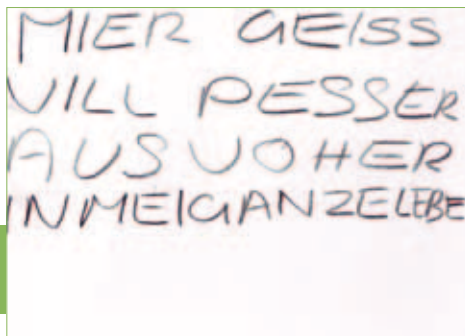 MIER GEISS
VILL PESSER
AUS VOHER
INMEIGANZELEBE